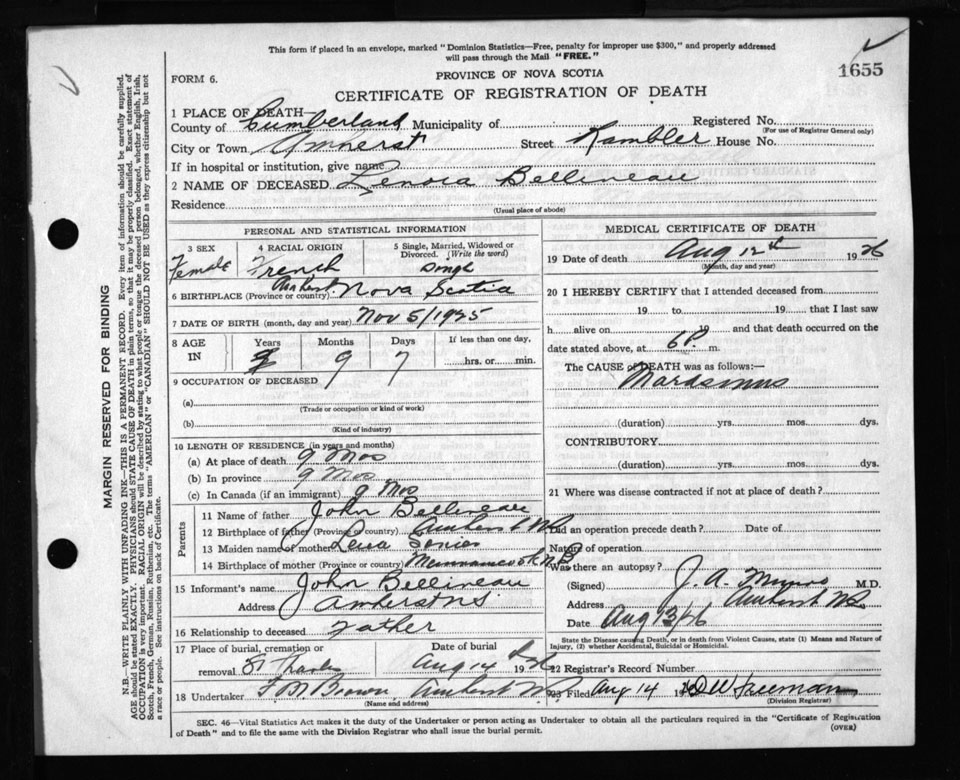 This form if placed in an envelope, marked "Dominion Statistics—Free, penalty for improper use $300," and properly addressed
will pass through the Mail "FREE."
1655
FORM 6.
PROVINCE OF NOVA SCOTIA
CERTIFICATE OF REGISTRATION OF DEATH
MARGIN RESERVED FOR BINDING
N.B.—WRITE PLAINLY WITH UNFADING INK—THIS IS A PERMANENT RECORD. Every item of information should be carefully supplied.
AGE should be stated EXACTLY. PHYSICIANS should STATE CAUSE OF DEATH in plain terms, so that it may be properly classified. Exact statement of
OCCUPATION is very important. RACIAL ORIGIN will be described by stating to what people or tongue the deceased person belonged, whether English, Irish,
Scotch, French, German, Russian, Ruthenian, etc. The terms "AMERICAN" or "CANADIAN" SHOULD NOT BE USED as they express citizenship but not
a race or people. See instructions on back of Certificate.
1 PLACE OF DEATH—
County of Cumberland Municipality of Registered No.
(For use of Registrar General only)
City or Town Amherst Street Rambler House No.
If in hospital or institution, give name
2 NAME OF DECEASED Lenora Bellineau
Residence
(Usual place of abode)
PERSONAL AND STATISTICAL INFORMATION
3 SEX 4 RACIAL ORIGIN 5 Single, Married, Widowed or Divorced. (Write the word)
Female French Single
6 BIRTHPLACE (Province or country) Amherst Nova Scotia
7 DATE OF BIRTH (month, day and year) Nov 5/1925
8 AGE IN Years Months Days If less than one day,
9 7 hrs. or min.
9 OCCUPATION OF DECEASED
(a)
(Trade or occupation or kind of work)
(b)
(Kind of industry)
10 LENGTH OF RESIDENCE (in years and months)
(a) At place of death 9 Mos
(b) In province 9 Mos
(c) In Canada (if an immigrant) 9 Mos
Parents
11 Name of father John Bellineau
12 Birthplace of father (Province or country) Amherst NS
13 Maiden name of mother Lena
14 Birthplace of mother (Province or country) N.B
15 Informant's name John Bellineau
Address Amherst NS
16 Relationship to deceased Father
17 Place of burial, cremation or removal St Charles
Date of burial Aug 14 1926
18 Undertaker Brown Amherst NS
(Name and address)
MEDICAL CERTIFICATE OF DEATH
19 Date of death Aug 12th 1926
(Month, day and year)
20 I HEREBY CERTIFY that I attended deceased from
19 to 19 that I last saw
h alive on 19 and that death occurred on the
date stated above, at 6 P m.
The CAUSE of DEATH was as follows:—
Marasmus
(duration) yrs. mos. dys.
CONTRIBUTORY
(duration) yrs. mos. dys.
21 Where was disease contracted if not at place of death?
Did an operation precede death? Date of
Nature of operation
Was there an autopsy?
(Signed) J. A. Munro M.D.
Address Amherst NS.
Date Aug 13/26
State the Disease causing Death, or in death from Violent Causes, state (1) Means and Nature of
Injury, (2) whether Accidental, Suicidal or Homicidal.
22 Registrar's Record Number
23 Filed Aug 14 D W Freeman
(Division Registrar)
SEC. 46—Vital Statistics Act makes it the duty of the Undertaker or person acting as Undertaker to obtain all the particulars required in the "Certificate of Registration
of Death" and to file the same with the Division Registrar who shall issue the burial permit.
(OVER)